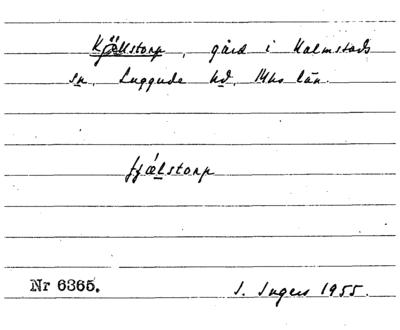 Kjällstorp, gård i Kalmstads
sn. Luggude hd, Mhs län.
fjälstorp
Nr 6365.
I. Ingers 1955.